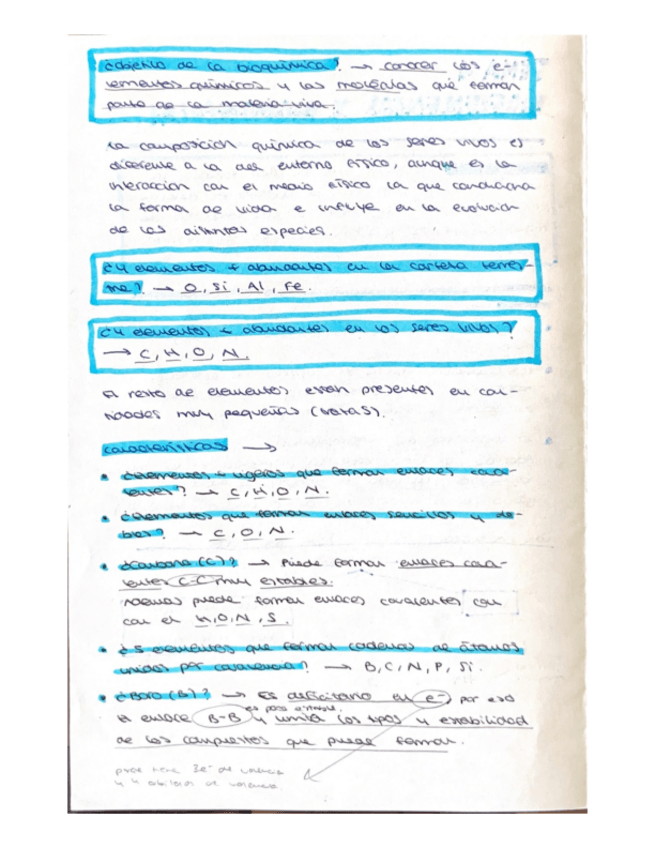 ¿objetivo de la bioquímica? → conocer los e-
lementos químicos y las moléculas que forman
parte de la materia viva.
La composición química de los seres vivos es
diferente a la del entorno físico, aunque es la
interacción con el medio físico la que condiciona
la forma de vida e influye en la evolución
de las distintas especies.
¿4 elementos + abundantes en la corteza terres-
tre? → O, Si, Al, Fe.
¿4 elementos + abundantes en los seres vivos?
→ C, H, O, N.
El resto de elementos están presentes en can-
tidades muy pequeñas (trazas).
características →
• ¿Elementos + ligeros que forman enlaces cova-
lentes? → C, H, O, N.
• ¿Elementos que forman enlaces sencillos y do-
bles? → C, O, N.
• ¿Carbono (C)? → Puede formar enlaces cova-
lentes C-C muy estables.
Además puede formar enlaces covalentes con
con el H, O, N, S.
• ¿5 elementos que forman cadenas de átomos
unidos por covalencia? → B, C, N, P, Si.
• ¿Boro (B)? → Es deficitario en e-, por eso
es poco estable.
el enlace B-B y limita los tipos y estabilidad
de los compuestos que puede formar.
tiene 3e- de valencia
y 4 orbitales de valencia.